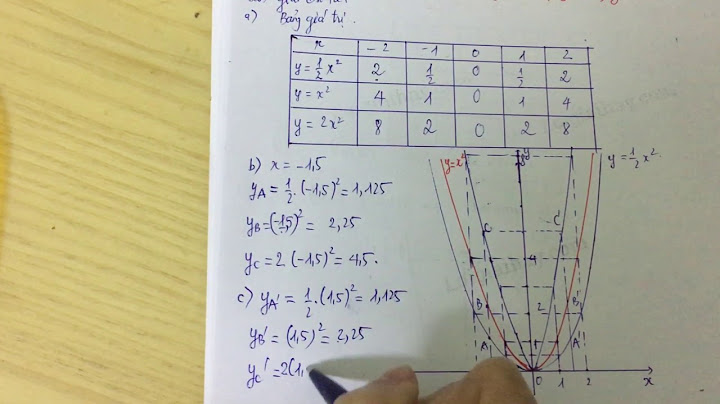 a) Bảng giá trị.
x -2 -1 0 1 2
y = 1/2 x² 2 1/2 0 1/2 2
y = x² 4 1 0 1 4
y = 2x² 8 2 0 2 8
b) x = -1,5
yA = 1/2 . (-1,5)² = 1,125
yB = (-1,5)² = 2,25
yC = 2 . (-1,5)² = 4,5.
c) yA' = 1/2 . (1,5)² = 1,125
yB' = (1,5)² = 2,25
yC' = 2(1,
y = x²
y
y = 1/2 x².
C C'
4
B 2 B'
A 1 A'
0 1 2 x